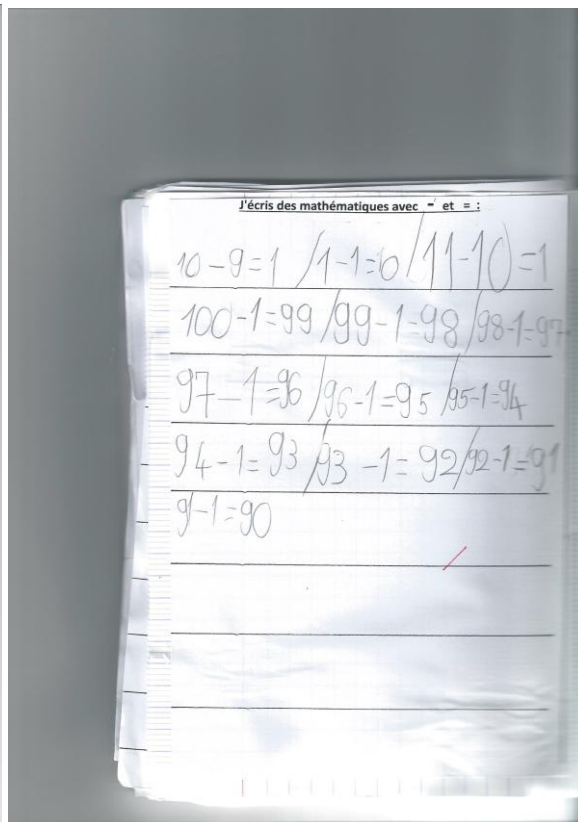 J'écris des mathématiques avec - et = :
10-9=1 /1-1=0/11-10=1
100-1=99/99-1=98/98-1=97
97-1=96/96-1=95/95-1=94
94-1=93/93-1=92/92-1=91
91-1=90